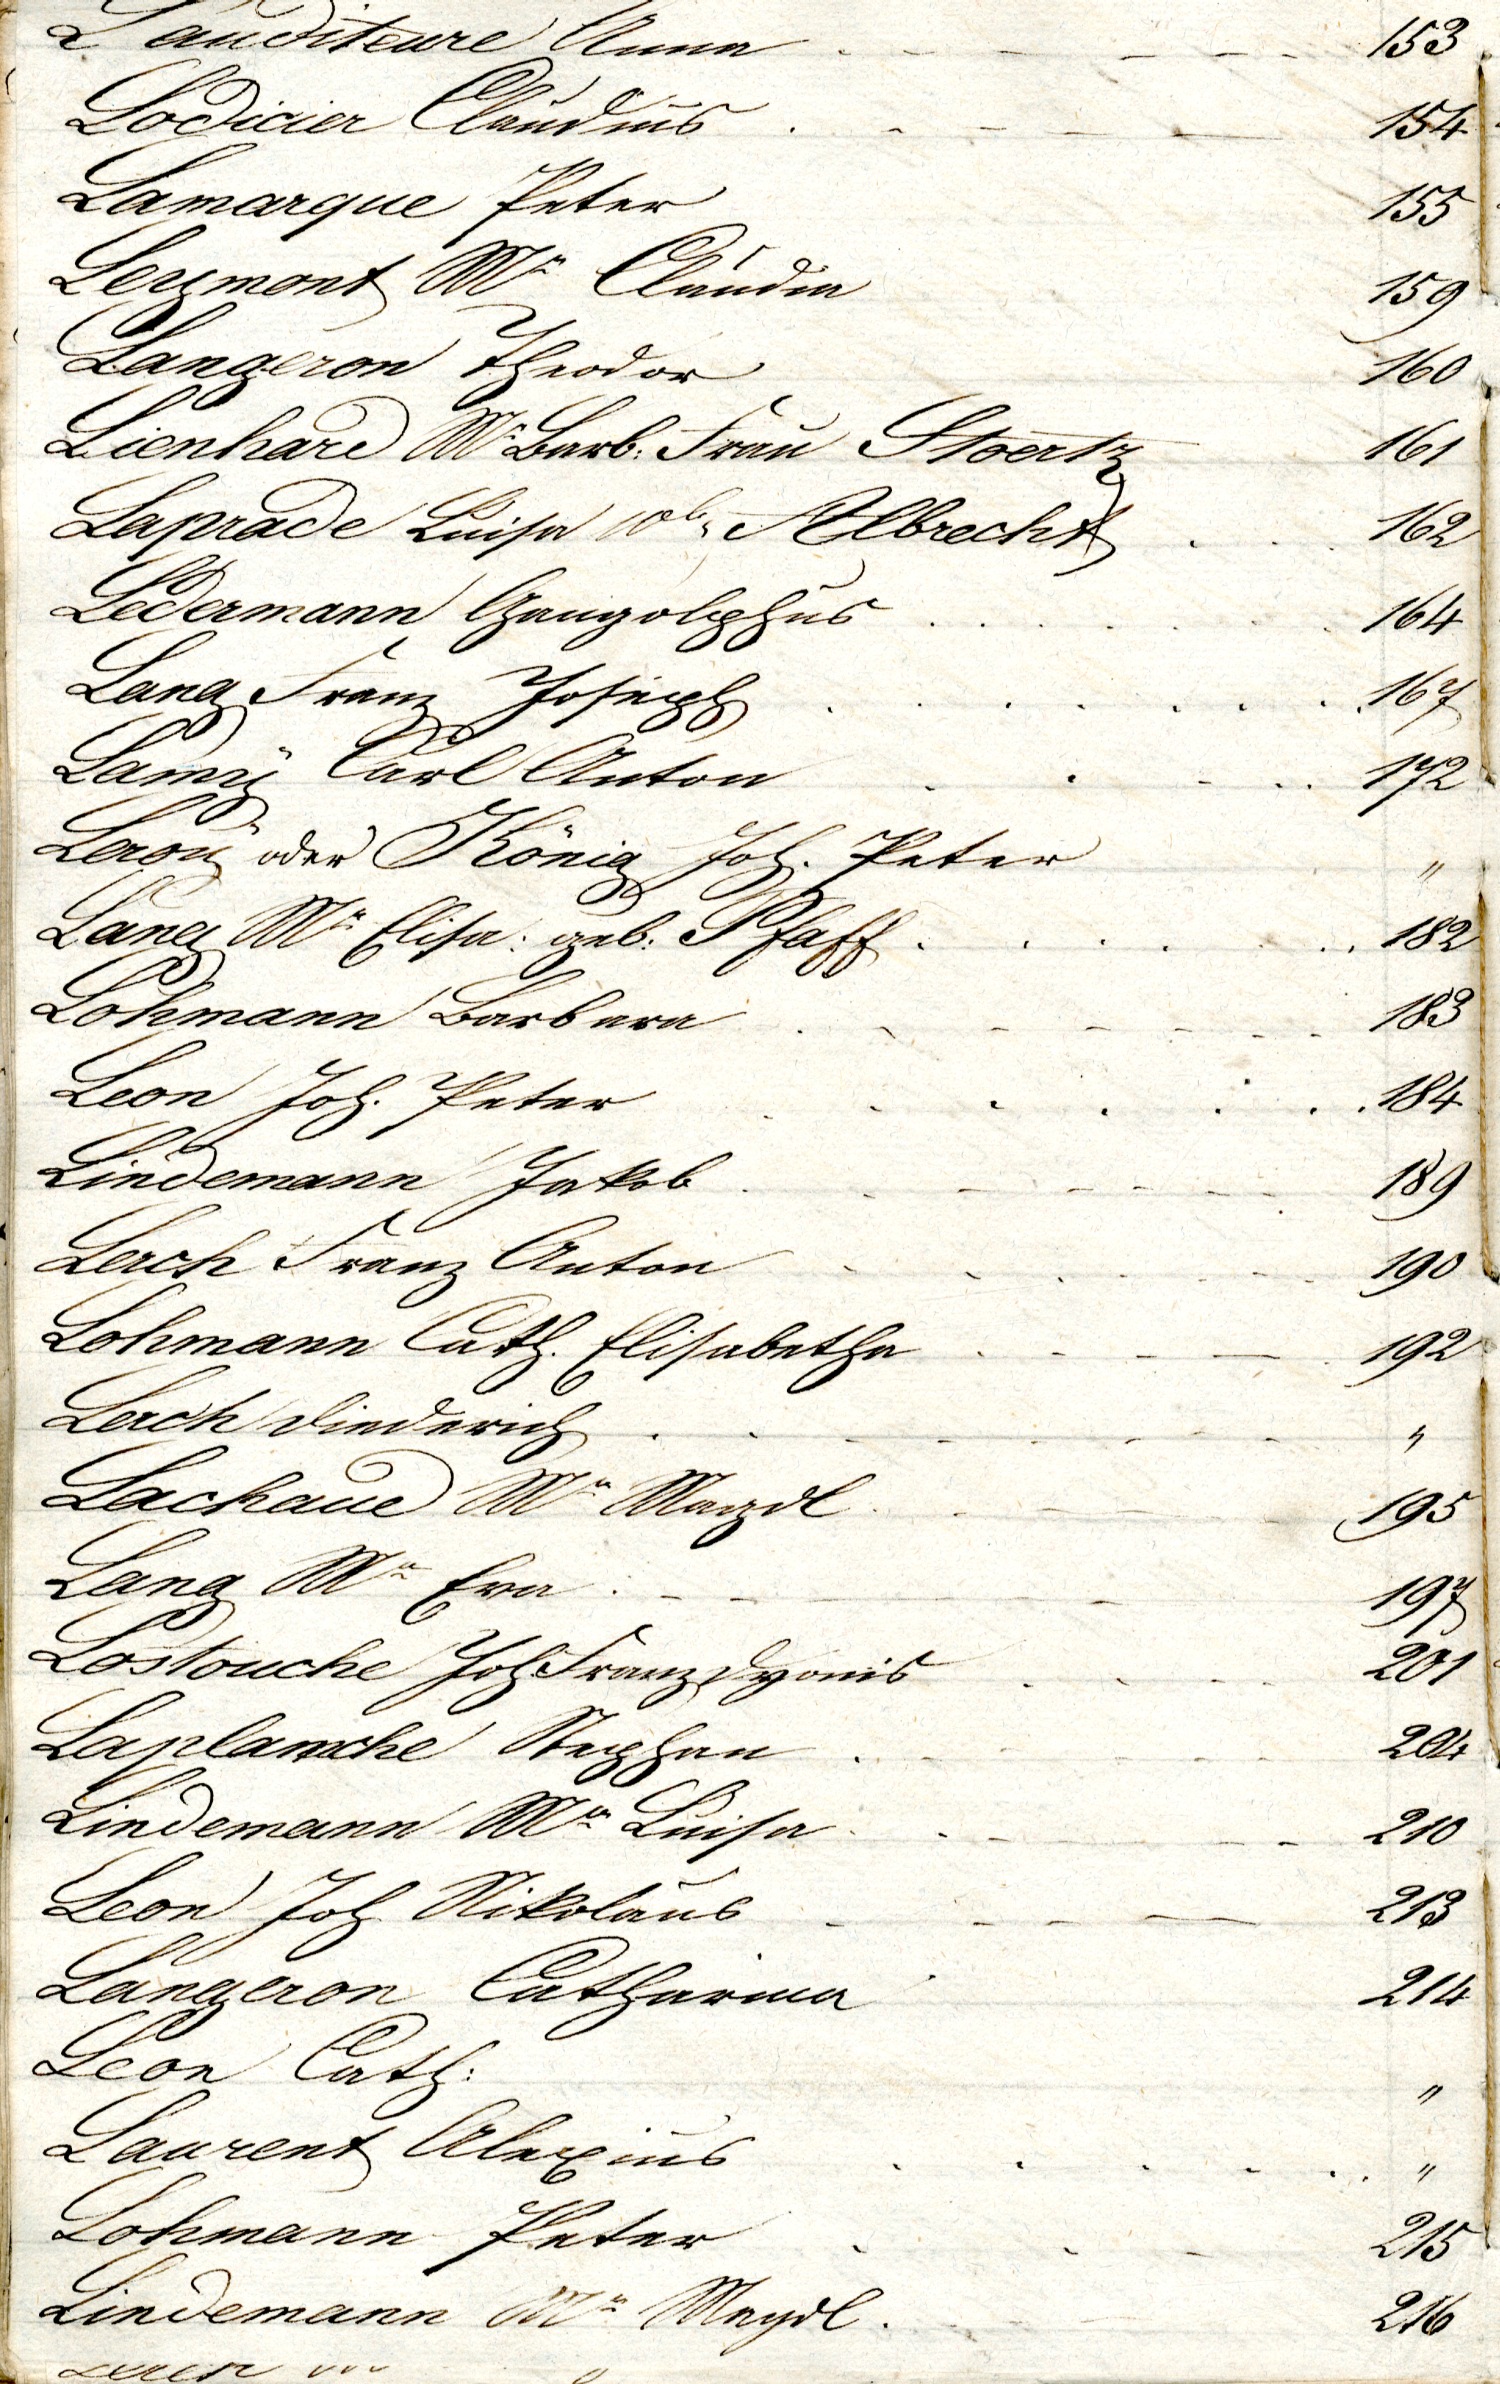 Lauditeure Anna . . - - - - - - 153
Lodicier Claudius . . - - - 154
Lamarque Peter 155
Leymont Mª Claudia 159
Langeron Theodor 160
Lienhard Mª Barb: Frau Stoertz 161
Laprade Luisa Wbe Albrecht . . . 162
Ledermann Gangolphus . . . . . . . 164
Lang Franz Joseph . . . . . . . . 167
Lamÿ Carl Anton . . . . . 172
Leroÿ oder König Joh. Peter "
Lang Mª Elisa: geb: Pfaff . . . . . . . . 182
Lohmann Barbara . - - - - - - - 183
Leon Joh. Peter . . . . . . . 184
Lindemann Jakob . . - - - - - - 189
Lerch Franz Anton . . . . - - - 190
Lohmann Cath. Elisabetha . . - - - . 192
Lerch Diederich . . - - - - - - "
Lachaud Mª Magdl . . - - - - 195
Lang Mª Eva . - - - - - 197
Lostouche Joh. Franz Dyonis . . . . . 201
Laplanche Stephan . . - - - - - 204
Lindemann Mª Luisa . . - - - - - 210
Leon Joh Nikolaus - - - - - 213
Langeron Catharina 214
Leon Cath: "
Laurent Alexius . . . . . . . "
Lohmann Peter . . . 215
Lindemann Mª Magdl . 216